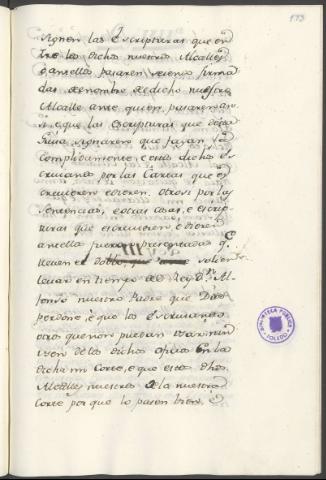 173
signen las Escripturas que en
tre los dichos nuestros Alcalles
o antellos pasaren e sean firma
das de nombre de dicho nuestro
Alcalle ante quien pasaren an
si e que las Escripturas que desta
guisa signaren que hayan fee
complidamente, e estos dichos es
crivanos por las Cartas que es
crivieren e dieren. otrosi por las
sentencias, e otras cosas, e escrip
turas que escrivieren, e dieren
antella fueren presentadas qe
lleven el doblo, que solien
levar en tiempo del Rey Dn Al
fonso nuestro Padre que Dios
perdone, e que los escrivanos
otro que non puedan usar nin
usen de los dichos oficios en la
dicha mi Corte, e que estos dhos
Alcalles nuestros de la nuestra
Corte por que lo pasen bien, e
BIBLIOTECA PUBLICA
TOLEDO